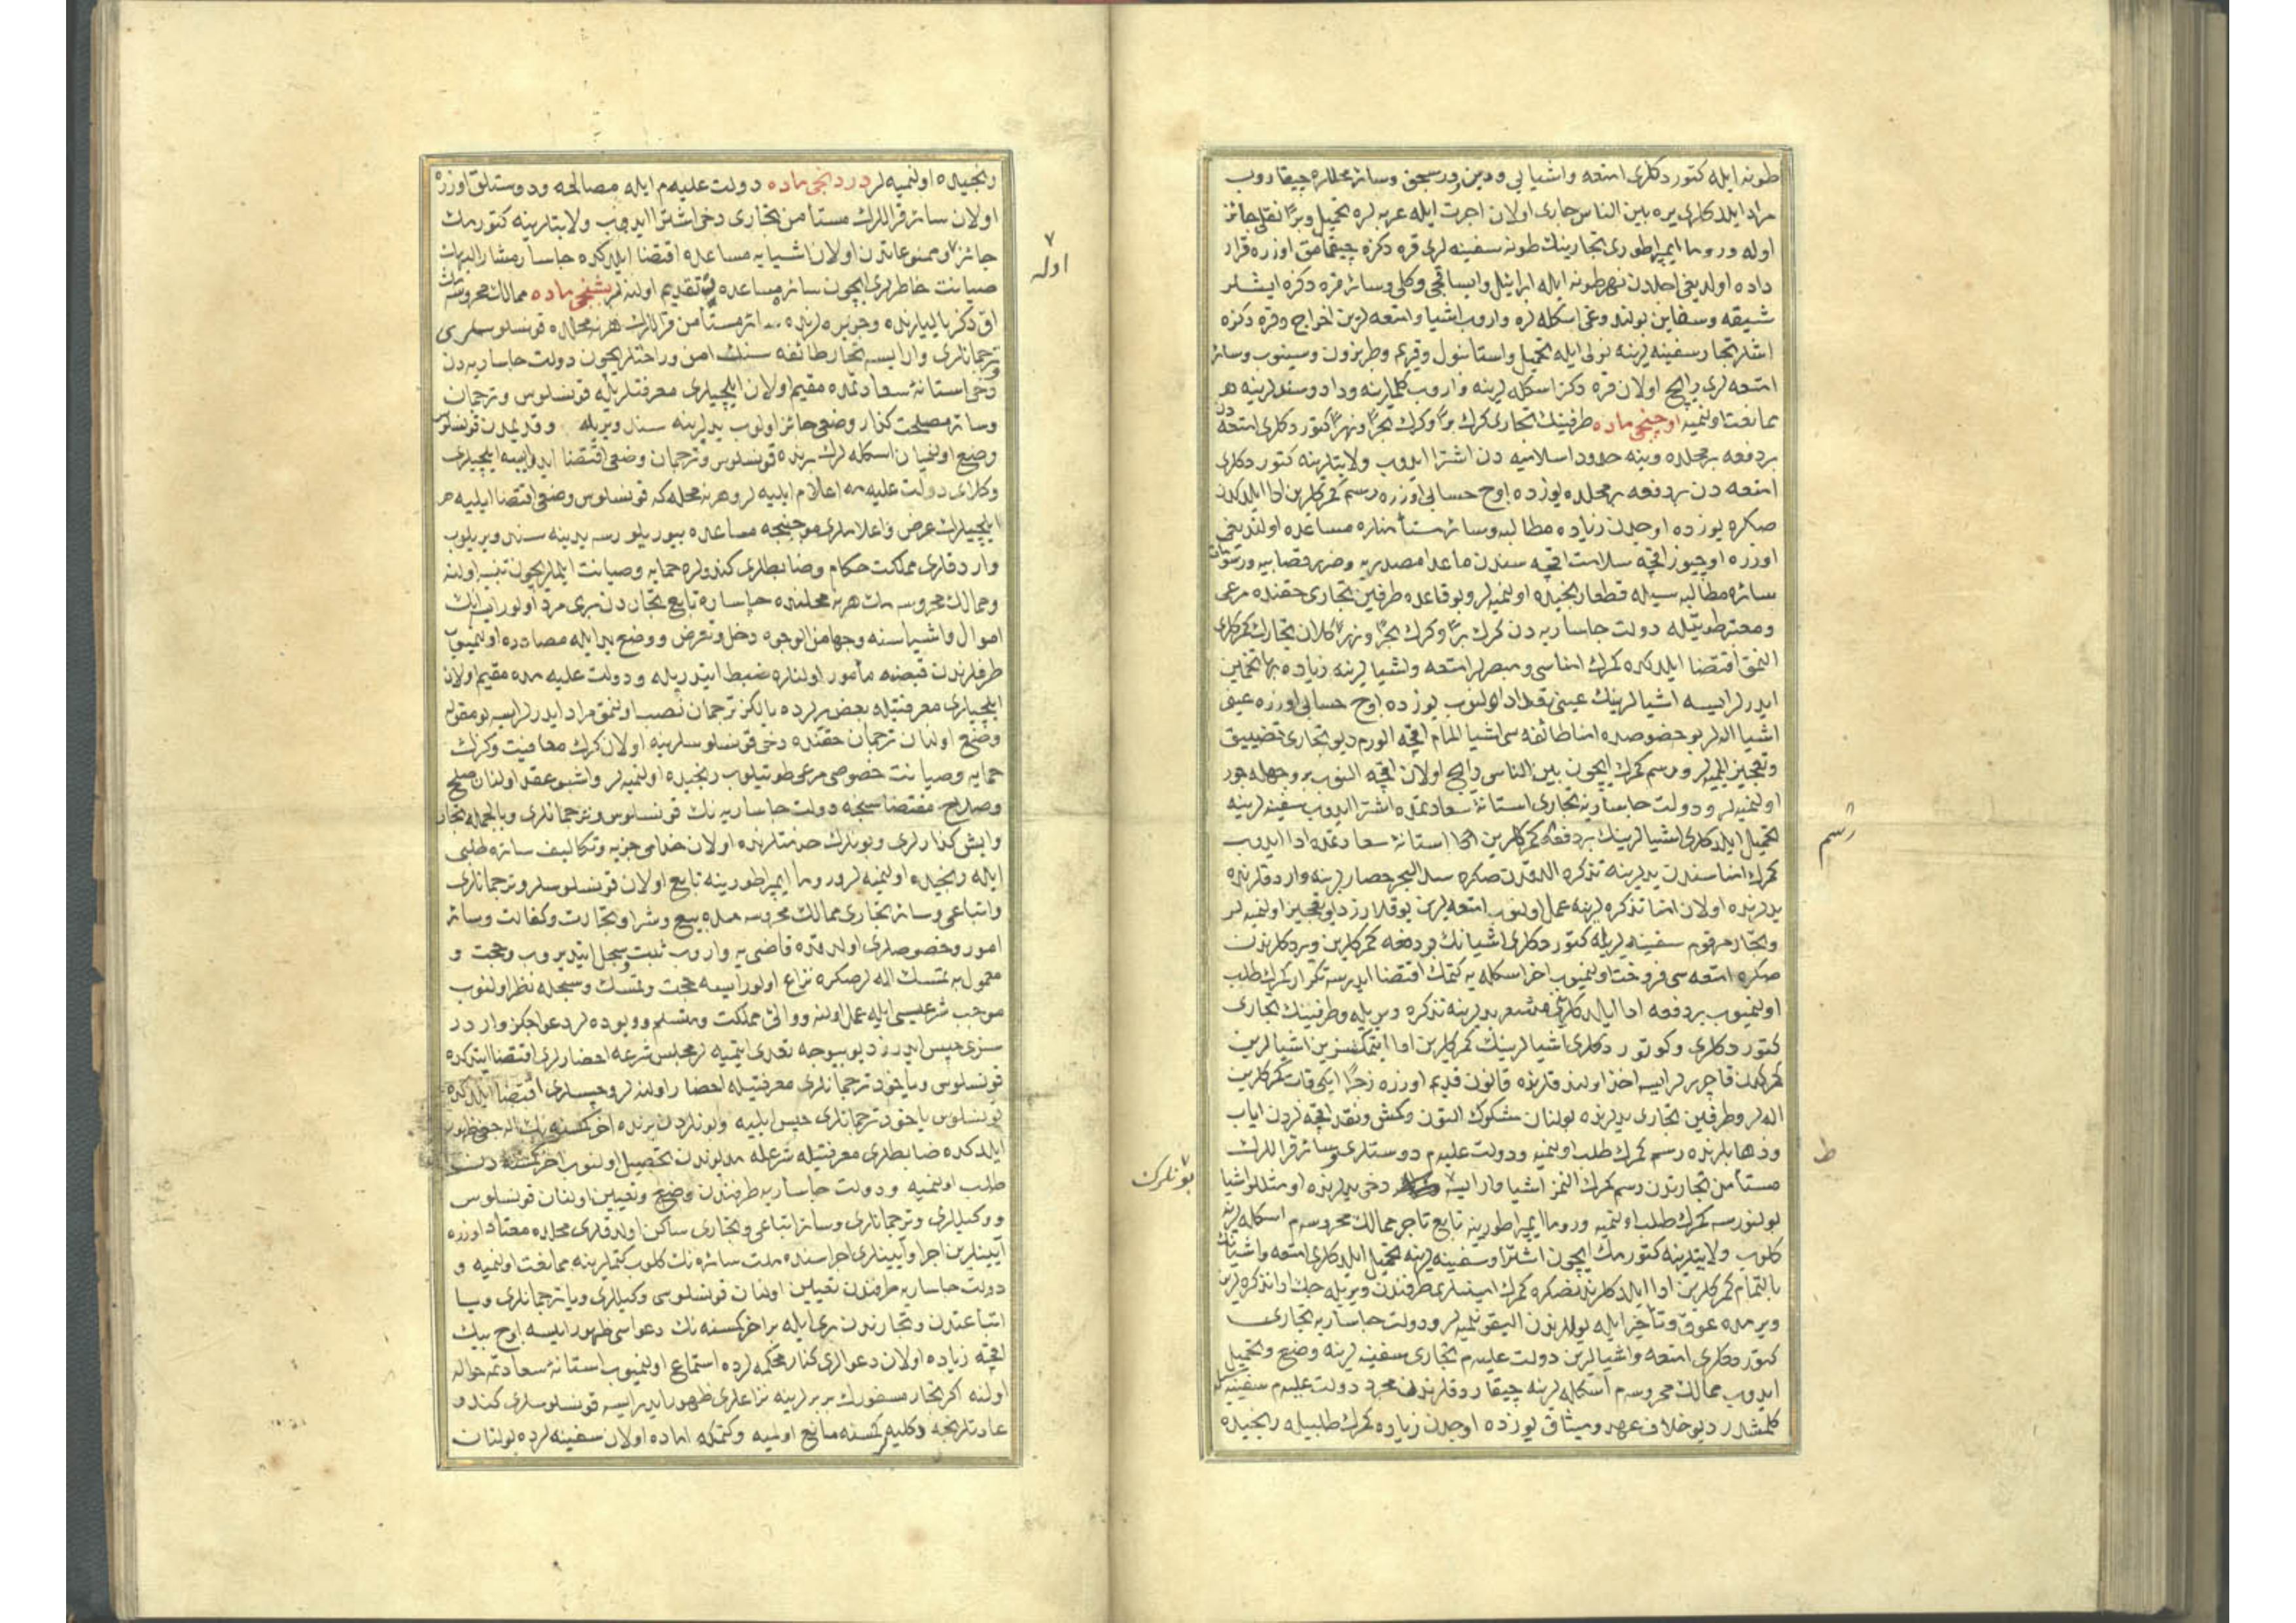 طونه ایله کتوردکلری امتعه واشیایی ودین ورسجق وسائر محللره چیقاروب
مراد ایلدکلری یره بین الناس جاری اولان اجرت ایله عربه لره تحمیل وبرًا نقلی جائز
اوله وروما ایمپراطوری تجارینك طونه سفینه لری قره دکزه چیقمامق اوزره قرار
داده اولدیغی اجلدن نهر طونه ایله ابرائیل وایساقجی وکلی وسائر قره دکزه ایشلر
شیقه وسفاین بولندوغی اسکله لره واروب اشیا وامتعه لرین اخراج وقره دکزه
اشلر تجار سفینه لرینه نولی ایله تحمیل واستانبول وقریم وطربزون وسینوب وسائر
امتعه لری رایج اولان قره دکز اسکله لرینه واروب کلملرینه ودادوستدلرینه هر
ممانعت اولنمیه اوچنجی ماده طرفینك تجاری کرك برًا وکرك بحرًا ونهرًا کتوردکلری امتعه دن
بر دفعه بر محلده وینه حدود اسلامیه دن اشترا ایدوب ولایتلرینه کتوردکلری
امتعه دن بر دفعه بر محلده یوزده اوچ حسابی اوزره رسم کمرکلرین ادا ایلدکدن
صکره یوزده اوچدن زیاده مطالبه وسائر مستأمنلره مساعده اولندیغی
اوزره اوچیوز اقچه سلامت اقچه سندن ماعدا مصدریه وضرر قصابیه ورسومات
سائره مطالبه سیله قطعا رنجیده اولنمیه لر وبو قاعده طرفین تجاری حقنده مرعی
ومعتبر طوتیله دولت جاساریه دن کرك برًا وکرك بحرًا ونهرًا کلان تجارك کمرکلری
النمق اقتضا ایلدکده کمرك امناسی ومبصرلر امتعه واشیالرینه زیاده بها تخمین
ایدرلر ایسه اشیالرینك عینی نقد ادا اولنوب یوزده اوچ حسابی اوزره عین
اشیا اله لر بو خصوصده امنا طائفه سی اشیا المام اقچه الورم دیو تجاری تضییق
وتعجیز ایلمیه لر ورسم کمرك ایچون بین الناس رایج اولان اقچه النوب بر وجهله جور
اولنمیه لر ودولت جاساریه تجاری استانۀ سعادتمده اشترا ایدوب سفینه لرینه
تحمیل ایلدکلری اشیالرینك بر دفعه کمرکلرین انجا استانۀ سعادتمده ادا ایدوب
رسم
کمرك امناسندن یدلرینه تذکره الدقدن صکره سد البحر حصارلرینه واردقلرنده
یدلرنده اولان امنا تذکره لرینه عمل اولنوب امتعه لرین یوقلارز دیو تعجیز اولنمیه لر
وتجار مرقوم سفینه لریله کتوردکلری اشیانك بر دفعه کمرکلرین ویردکلرندن
صکره امتعه سی فروخت اولنمیوب اخر اسکله یه کتمك اقتضا ایدرسه تکرار کمرك طلب
اولنمیوب بر دفعه ادا ایلدکلرین مشعر یدلرینه تذکره ویریله وطرفینك تجاری
کتوردکلری وکوتوردکلری اشیالرینك کمرکلرین ادا ایتمکسزین اشیالرین
کمرکدن قاچررلر ایسه اخذ اولندقلرنده قانون قدیم اوزره زجرًا ایکی قات کمرکلرین
اله لر وطرفین تجاری یدلرنده بولنان مسکوك التون وکمش ونقد اقچه لردن ایاب
وذهابلرنده رسم کمرك طلب اولنمیه ودولت علیه م دوستلری وسائر قرالرك
ط
مستأمن تجارندن رسم کمرك النمز اشیا وار ایسه دخی یدلرنده او مثللو اشیا
بونلرك
بولنورسه کمرك طلب اولنمیه وروما ایمپراطورینه تابع تاجر ممالك محروسه م اسکله لرینه
کلوب ولایتلرینه کتورمك ایچون اشترا وسفینه لرینه تحمیل ایلدکلری امتعه واشیانك
بالتمام کمرکلرین ادا ایلدکلرندنصکره کمرك امینلری طرفندن ویریله جك ادا تذکره لرین
ویرمده عوق وتأخیر ایله یوللرندن الیقونلمیه لر ودولت جاساریه تجاری
کتوردکلری امتعه واشیالرین دولت علیه م تجاری سفینه لرینه وضع وتحمیل
ایدوب ممالك محروسه م اسکله لرینه چیقاردقلرندن مجرد دولت علیه م سفینه سیله
کلمشدر دیو خلاف عهد ومیثاق یوزده اوچدن زیاده کمرك طلبیله رنجیده
رنجیده اولنمیه لر دردنجی ماده دولت علیه م ایله مصالحه ودوستلق اوزره
اولان سائر قرالرك مستأمن تجاری دخی اشترا ایدوب ولایتلرینه کتورمك
جائز وممنوعاتدن اولان اشیایه مساعده اقتضا ایلدکده جاسار مشار الیهك
اوله
صیانت خاطرلری ایچون سائره مساعده تقدیم اولنه لر بشنجی ماده ممالك محروسه مك
اق دکز یالیلرنده وجزیره لرنده سائر مستأمن قرالرك هر نه محلده قونسلوسلری
ترجمانلری وار ایسه تجار طائفه سنك امن وراحتلریچون دولت جاساریه دن
دخی استانۀ سعادتمده مقیم اولان ایلچیلری معرفتلریله قونسلوس وترجمان
وسائر مصلحت کذار وضعی جائز اولوب یدلرینه سند ویریله وقدیمدن قونسلوس
وضع اولنمیان اسکله لرك برنده قونسلوس وترجمان وضعی اقتضا ایدرایسه ایلچیلری
وکلای دولت علیه مه اعلام ایلیه لر وهر نه محله که قونسلوس وضعی اقتضا ایلیه
ایلچیلرك عرض واعلاملری موجبنجه مساعده بیوریلورسه یدینه سند ویریلوب
واردقلری مملکت حکام وضابطلری کندولره حمایه وصیانت ایلملریچون تنبیه اولنه
وممالك محروسه مك هر نه محلنده جاساره تابع تجاردن بری مرد اولور ایسه انك
اموال واشیاسنه وجها من الوجوه دخل وتعرض ووضع ید ایله مصادره اولنمیوب
طرفلرندن قبضنه مأمور اولنلره ضبط ایتدریله ودولت علیه مده مقیم اولان
ایلچیلری معرفتیله بعض یرلرده یالکز ترجمان نصب اولنمق مراد ایدرلر ایسه بو مقوله
وضع اولنان ترجمان حقنده دخی قونسلوسلرینه اولان کمرك معافیت وکرك
حمایه وصیانت خصوصی مرعی طوتیلوب رنجیده اولنمیه لر واشبو عقد اولنان صلح
وصلاح مقتضاسنجه دولت جاساریه نك قونسلوس وترجمانلری وبالجمله تجار
وایش کذارلری وبونلرك خدمتلرنده اولان خدامی جزیه وتکالیف سائره طلبی
ایله رنجیده اولنمیه لر وروما ایمپراطورینه تابع اولان قونسلوسلر وترجمانلری
واتباعی وسائر تجاری ممالك محروسه مده بیع وشرا وتجارت وکفالت وسائر
امور وخصوصلری اولدقده قاضی یه واروب ثبت سجل ایتدیروب وحجت و
معمول به تمسك اله لر صکره نزاع اولور ایسه حجت وتمسك وسجله نظر اولنوب
موجب شرعیسی ایله عمل اولنه ووالئ مملکت ومتسلم وویوده لر دعواجکز واردر
سزی حبس ایدرز دیو بیوجه تعدی ایتمیه لر مجلس شرعه احضارلری اقتضا ایتدکده
قونسلوس ویاخود ترجمانلری معرفتیله احضار اولنه لر وحبسلری اقتضا ایلدکده
قونسلوس یاخود ترجمانلری حبس ایلیه وبونلردن برنده اخر کمسنه نك اله جغی ظهور
ایلدکده ضابطلری معرفتیله شرعله مدیوندن تحصیل اولنوب اخر کمسنه دن
طلب اولنمیه ودولت جاساریه طرفندن وضع وتعیین اولنان قونسلوس
ووکیللری وترجمانلری وسائر اتباعی وتجاری ساکن اولدقلری محلده معتاد اوزره
آیینلرین اجرا وآیینلری اجراسنده ملت سائره نك کلوب کتملرینه ممانعت اولنمیه و
دولت جاساریه طرفندن تعیین اولنان قونسلوسی وکیللری ویا ترجمانلری ویا
اتباعندن وتجارندن بری ایله بر اخر کمسنه نك دعواسی ظهور ایسه اوچ بیك
اقچه زیاده اولان دعوالری کنار محکمه لرده استماع اولنمیوب استانۀ سعادتمه حواله
اولنه اکر تجار مسفورك بربرلرینه نزاعلری ظهور ایدر ایسه قونسلوسلری کندو
عادتلرنجه کمسنه مانع اولمیه وکتمکه اماده اولان سفینه لرده بولنان